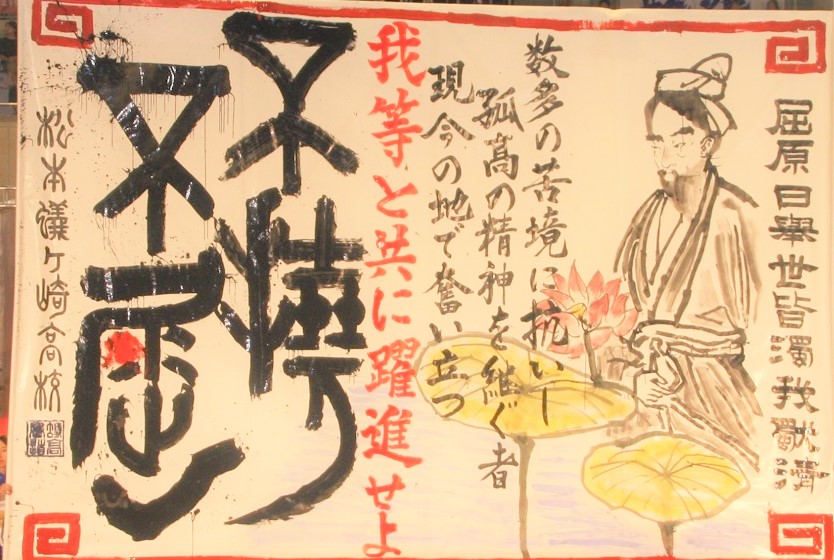 屈原曰舉世皆濁我獨清
数多の苦境に抗いし
孤高の精神を継ぐ者
現今の地で奮い立つ
我等と共に躍進せよ
不撓
不屈
松本蟻ヶ崎高校